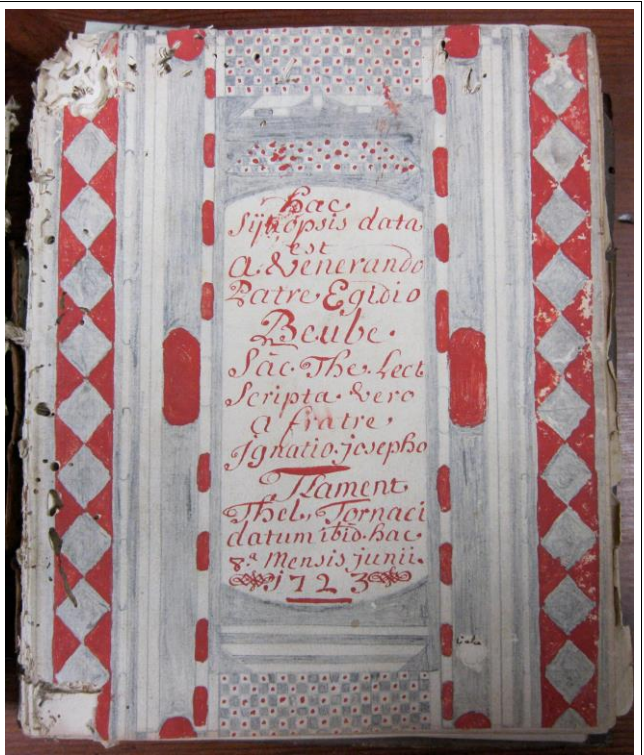 hac
Sÿnopsis data
est
A Venerando
Patre Egidio
Beube.
Sāc. The. Lect
Scripta vero
a fratre
Ignatio josepho
Flament
Thel. Tornaci
datum ibid. hac
8.ª Mensis junii.
1723